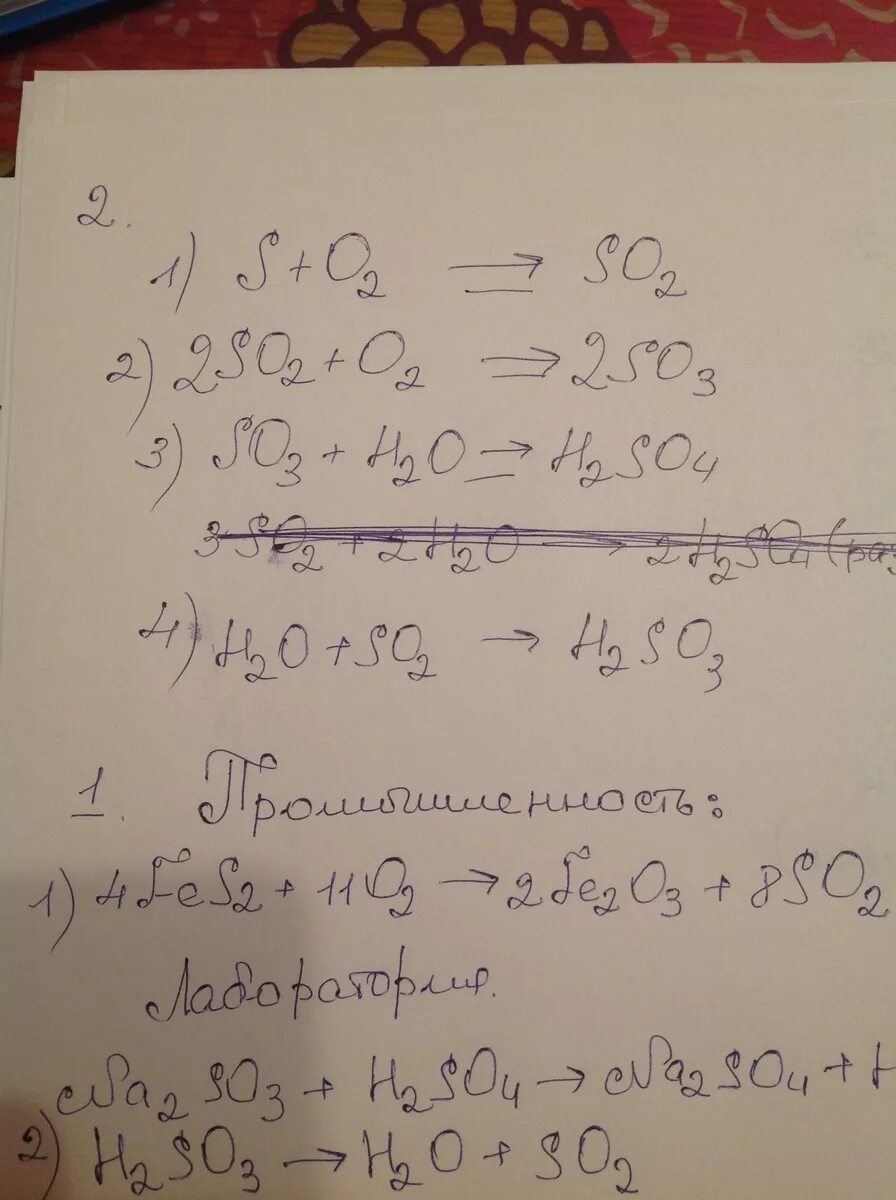 2.
1) S + O₂ ⇒ SO₂
2) 2SO₂ + O₂ ⇒ 2SO₃
3) SO₃ + H₂O ⇒ H₂SO₄
3SO₂ + 2H₂O → 2H₂SO₄ (раз
4) H₂O + SO₂ → H₂SO₃
1. Промышленность:
1) 4FeS₂ + 11O₂ → 2Fe₂O₃ + 8SO₂
Лаборатория.
Na₂SO₃ + H₂SO₄ → Na₂SO₄ + H
2) H₂SO₃ → H₂O + SO₂